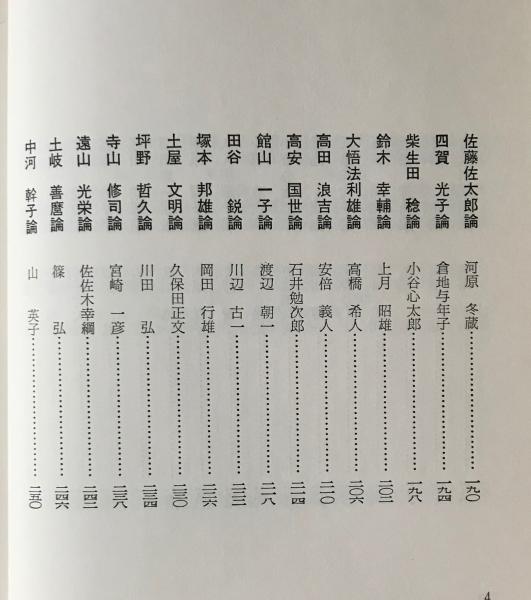 佐藤佐太郎論 河原 冬蔵……………………一九〇
四賀 光子論 倉地与年子……………………一九四
柴生田 稔論 小谷心太郎……………………一九八
鈴木 幸輔論 上月 昭雄……………………二〇二
大悟法利雄論 高橋 希人……………………二〇六
高田 浪吉論 安倍 義人……………………二一〇
高安 国世論 石井勉次郎……………………二一四
館山 一子論 渡辺 朝一……………………二一八
田谷 鋭論 川辺 古一……………………二二二
塚本 邦雄論 岡田 行雄……………………二二六
土屋 文明論 久保田正文……………………二三〇
坪野 哲久論 川田 弘……………………二三四
寺山 修司論 宮崎 一彦……………………二三八
遠山 光栄論 佐佐木幸綱……………………二四二
土岐 善麿論 篠 弘……………………二四六
中河 幹子論 山 英子……………………二五〇
4